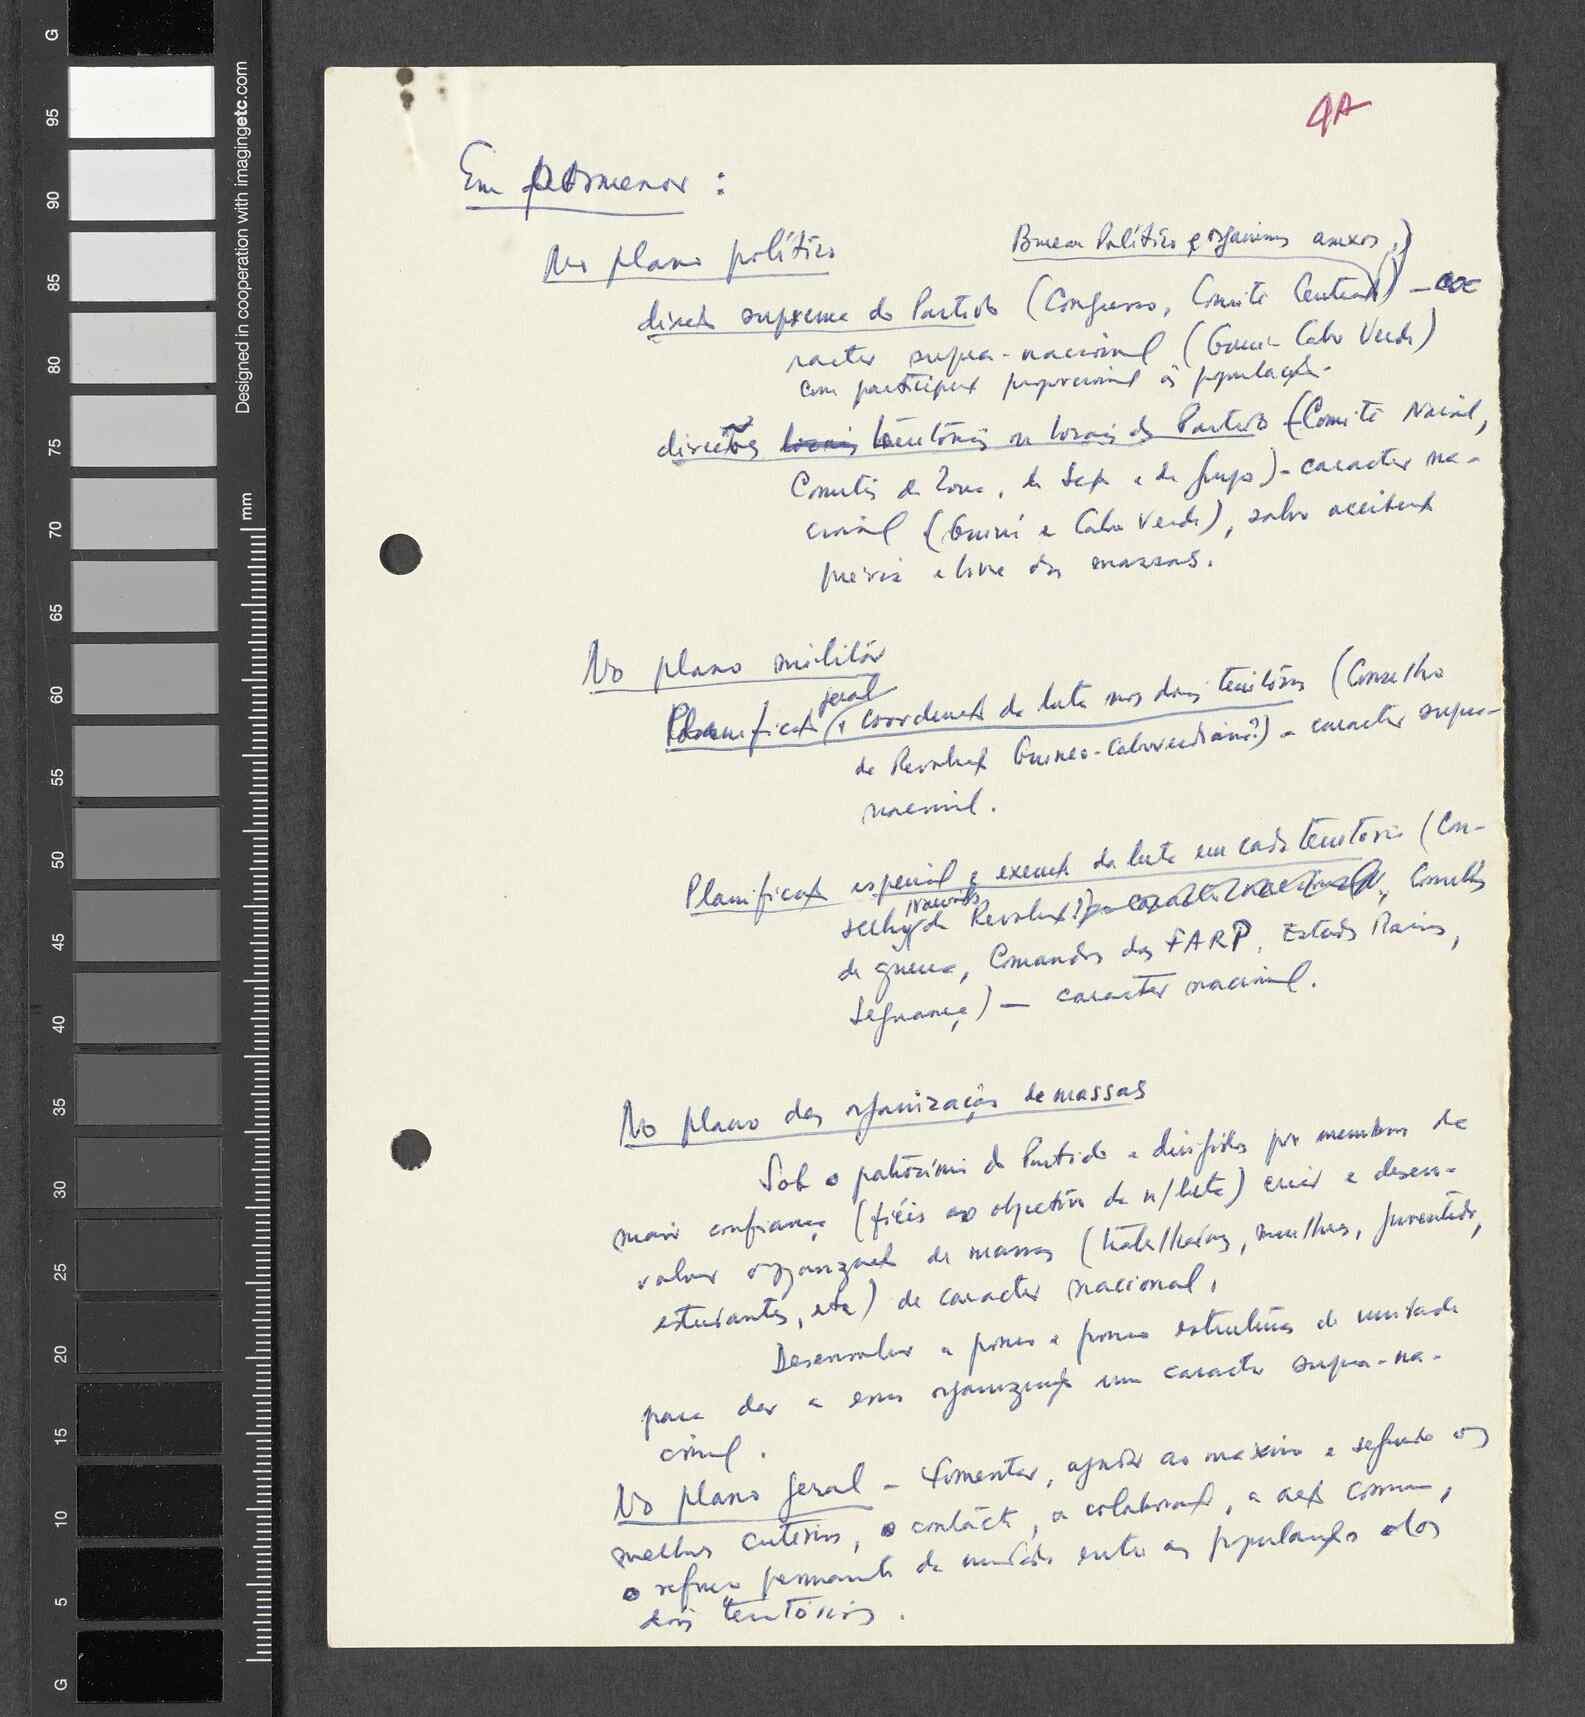 4A
Em pormenor :
No plano político
Bureau Político e organismos anexos,)
direcção suprema do Partido (Congresso, Comité Central) – ca
racter supra-nacional (Guiné Cabo Verde)
com participação proporcional à população.
direcções locais territoriais ou locais do Partido (Comité Nacional,
Comités de Zona, de Secção e de grupo) - caracter na-
cional (Guiné e Cabo Verde), salvo aceitação
prévia e livre das massas.
No plano militar
geral
Planificação e coordenação da luta nos dois territórios (Conselho
da Revolução Guineo-Caboverdiana?) - caracter supra-
nacional.
Planificação especial e execução da luta em cada território (Con-
nacionais
selhos da Revolução?), Conselhos
de guerra, Comandos das FARP, Estados Maiores,
Segurança) — caracter nacional.
No plano das organizações de massas
Sob o patrocínio do Partido e dirigidas por membros de
maior confiança (fiéis ao objectivo da n/luta) criar e desen-
volver organizações de massas (trabalhadores, mulheres, juventude,
estudantes, etc) de caracter nacional.
Desenvolver a pouco e pouco estruturas de unidade
para dar a essas organizações um caracter supra-na-
cional.
No plano geral – fomentar, ajudar ao máximo e segundo os
melhores critérios, o contacto, a colaboração, a acção comum,
o reforço permanente da unidade entre as populações dos
dois territórios.
G
95
90
85
80
75
70
65
60
55
50
45
40
35
30
25
20
15
10
5
G
Designed in cooperation with imagingetc.com
mm